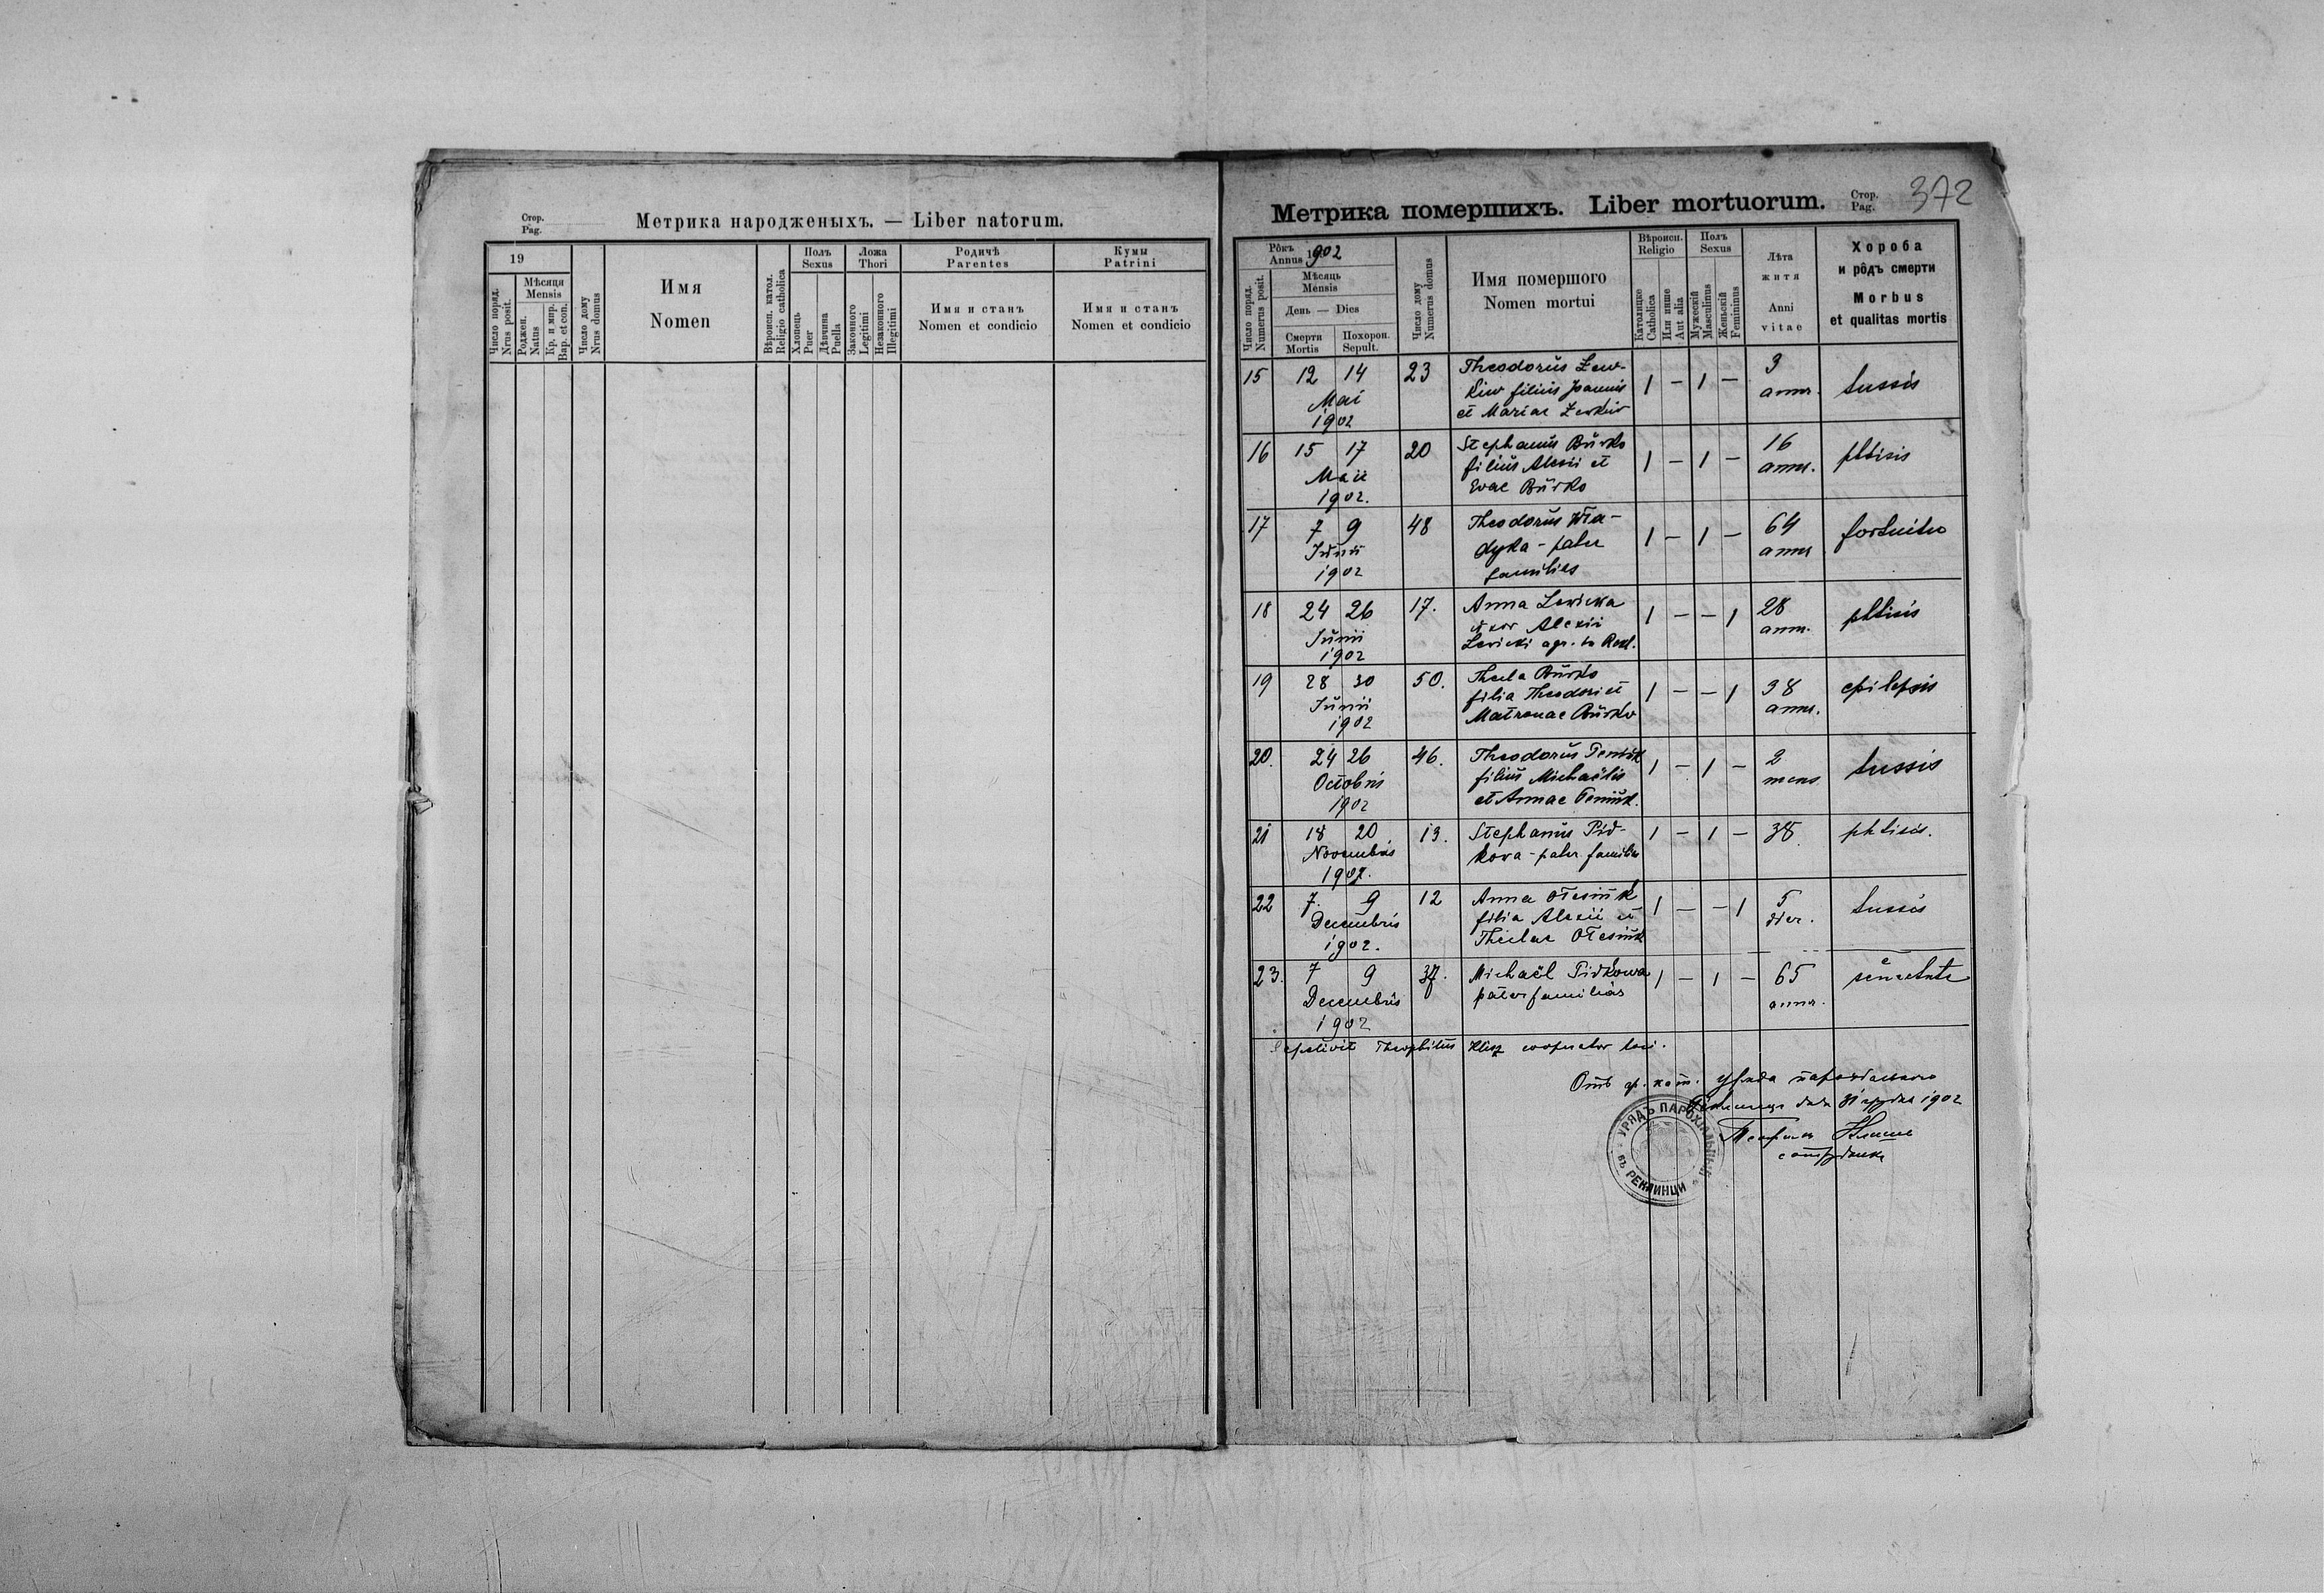 Стор.
Pag.
Метрика народженыхъ. — Liber natorum.
19
Число поряд.
Nrus posit.
Мѣсяця
Mensis
Роджен.
Natus
Кр. и мѵр.
Bap. et con.
Число дому
Nrus domus
Имя
Nomen
Вѣроисп. катол.
Religio catholica
Полъ
Sexus
Хлопець
Puer
Дѣвчина
Puella
Ложа
Thori
Законного
Legitimi
Незаконного
Illegitimi
Родичѣ
Parentes
Имя и станъ
Nomen et condicio
Кумы
Patrini
Имя и станъ
Nomen et condicio
Метрика помершихъ. Liber mortuorum.
Стор.
Pag.
372
Рôкъ
Annus 1902
Число поряд.
Numerus posit.
Мѣсяць
Mensis
День — Dies
Смерти
Mortis
Похорон.
Sepult.
Число дому
Numerus domus
Имя помершого
Nomen mortui
Вѣроисп.
Religio
Католицке
Catholica
Или инше
Aut alia
Полъ
Sexus
Мужескій
Masculinus
Женьскій
Femininus
Лѣта
житя
Anni
vitae
Хороба
и рôдъ смерти
Morbus
et qualitas mortis
15 12 14 23 Theodorus
filius Joannis 1 – 1 – 3 tussis
Mai et Mariae
1902
16 15 17 20 Stephanus Burko 16
filius Alexii et 1 – 1 – phtisis
Maii Evae Burko
1902.
17 7 9 48 Theodorus Wła- 64
Junii dyka - pater 1 – 1 – fortuito
1902 familias
18 24 26 17. Anna Lewicka 28
Junii uxor Alexii 1 – – 1 phtisis
1902 Lewicki
19 28 30 50. Thecla Burko
Junii filia Theodori et 1 – – 1 38 epilepsis
1902 Matronae Burko
20. 24 26 46. Theodorus 2
Octobris filius Michaëlis 1 – 1 – mens tussis
1902 et Annae
21 18 20 13. Stephanus Pid- 1 – 1 – 38 phtisis.
Novembris kova - pater familias
1902.
22 7. 9 12 Anna Ołesiuk 5
Decembris filia Alexii et 1 – – 1 dier. tussis
1902. Theclae Ołesiuk
23. 7 9 37. Michaël Pidkowa 1 – 1 – 65 senectute
Decembris pater familias
1902
Sepelivit Theophilus cooperator loci.
Отъ гр. кат. уряда парохіяльного
дня 31 грудня 1902
сотрудникъ
УРЯДЪ ПАРОХІАЛЬНЫЙ
въ РЕКЛИНЦИ